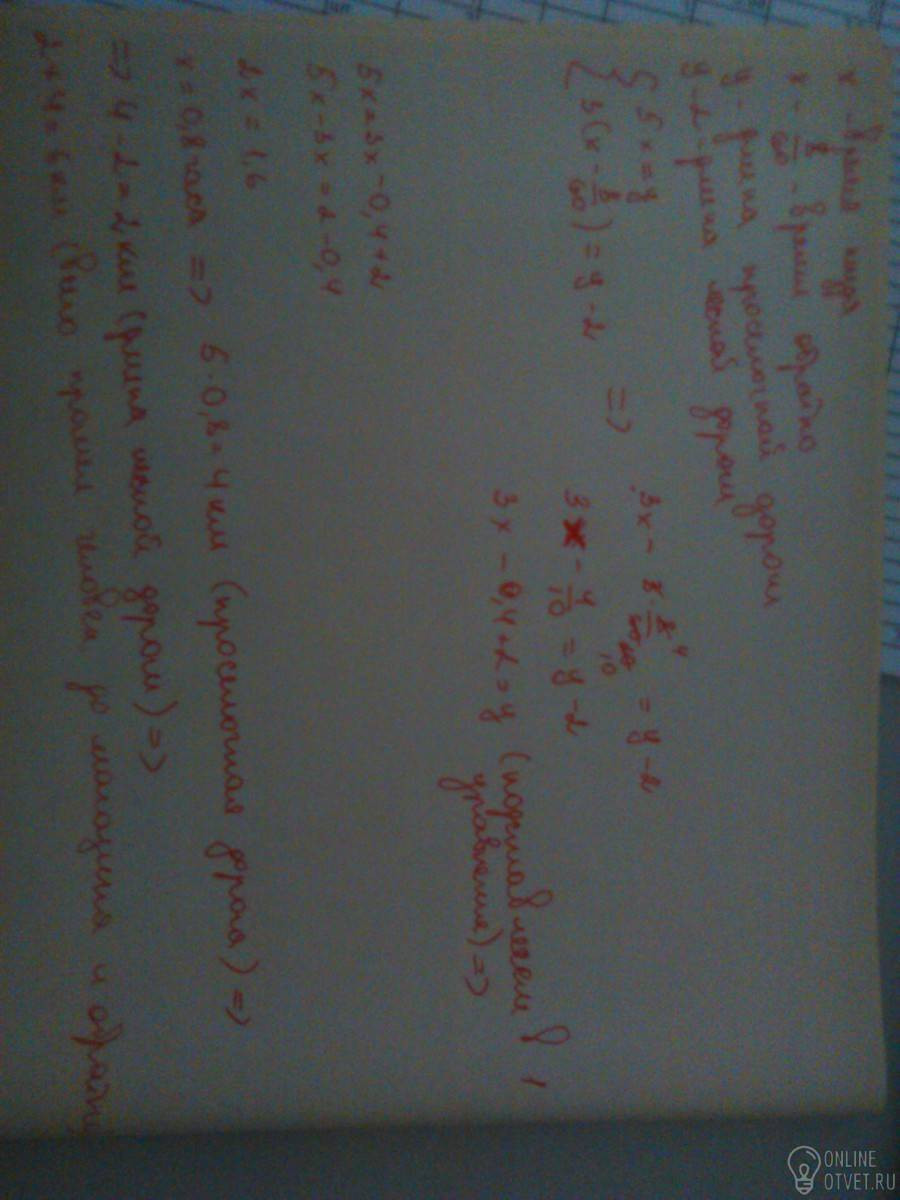 x - время туда
x - 8/60 - время обратно
y - длина проселочной дороги
y - 2 - длина лесной дороги
{ 5x = y
{ 3(x - 8/60) = y - 2 =>
3x - 3 · 8/60 = y - 2
4
10
3x - 4/10 = y - 2
3x - 0,4 + 2 = y (подставляем в 1
уравнение) =>
5x = 3x - 0,4 + 2
5x - 3x = 2 - 0,4
2x = 1,6
x = 0,8 часа => 5 · 0,8 = 4 км (проселочная дорога) =>
=> 4 - 2 = 2 км (длина лесной дороги) =>
2 + 4 = 6 км (всего прошел человек до магазина и обратно
ONLINE
OTVET.RU